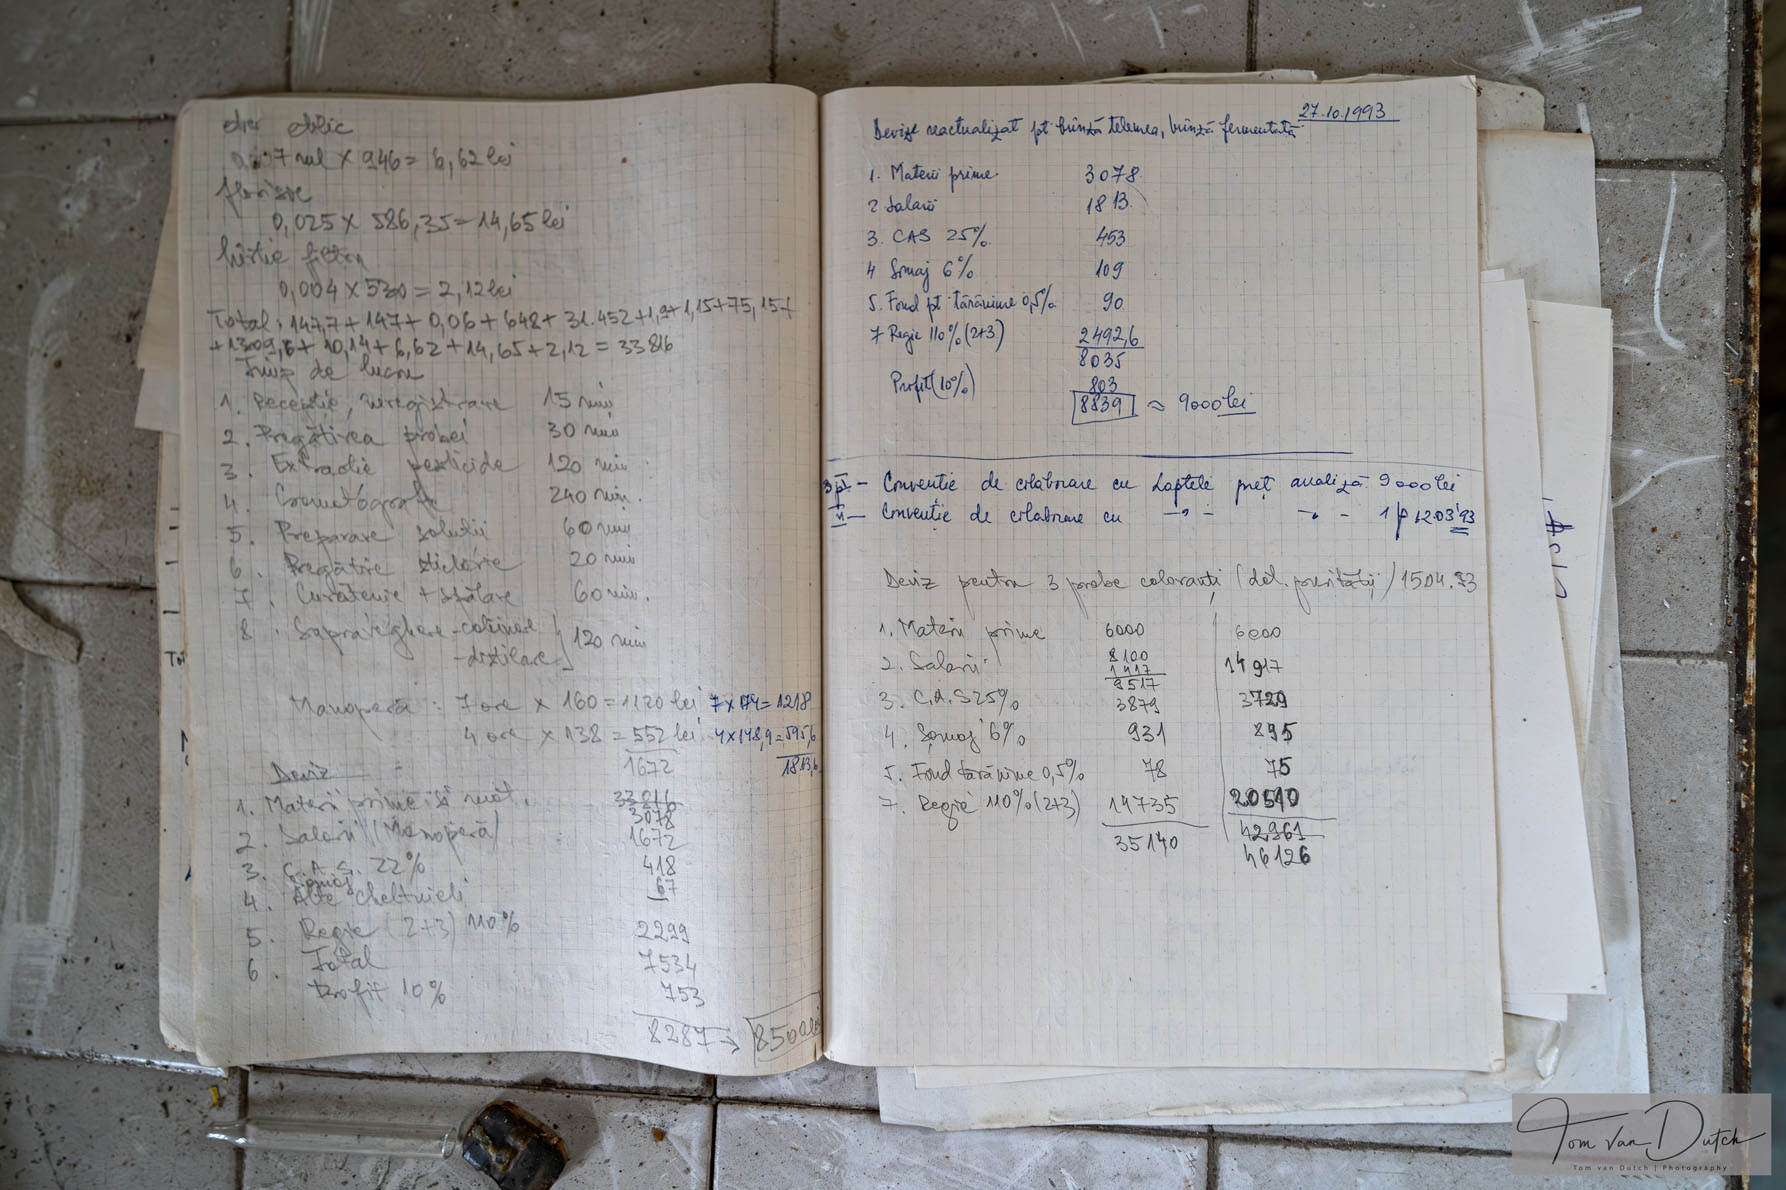 eter etilic
0,007 ml x 946 = 6,62 lei
florisire
0,025 x 586,35 = 14,65 lei
hîrtie filtru
0,004 x 530 = 2,12 lei
Total: 147,7 + 147 + 0,06 + 648 + 31.452 + 1,9 + 1,15 + 75,15 +
+ 1309,6 + 10,14 + 6,62 + 14,65 + 2,12 = 33816
Timp de lucru
1. Recepție, înregistrare 15 min
2. Pregătirea probei 30 min
3. Extracție pesticide 120 min
4. Cromatografie 240 min.
5. Preparare soluții 60 min
6. Pregătire sticlărie 20 min
7. Curățenie + spălare 60 min.
8. Supraveghere - calcinare
- distilare } 120 min
Manoperă: 7 ore x 160 = 1120 lei 7 x 174 = 1218
4 ore x 138 = 552 lei 4 x 148,9 = 595,6
1672 1813,6
Deviz
1. Materii prime și mat. 33816
3078
2. Salarii (Manoperă) 1672
3. C.A.S. 22% 418
Șomaj
4. Alte cheltuieli 67
5. Regie (2+3) 110% 2299
6. Total 7534
Profit 10% 753
8287 → 8500 lei
27.10.1993
Devize reactualizat pt brînză telemea, brînză fermentată
1. Materii prime 3078
2 Salarii 1813
3. CAS 25% 453
4 Șomaj 6% 109
5. Fond pt țărănime 0,5% 90
7 Regie 110% (2+3) 2492,6
8035
Profit (10%) 803
8839 ≈ 9000 lei
- Convenție de colaborare cu Laptele preț analiză 9000 lei
- Convenție de colaborare cu -"- -"- 12.03'93
Deviz pentru 3 probe coloranți (det. purității) 1504.93
1. Materii prime 6000 6000
2. Salarii 8100 14917
1417
9517
3. C.A.S 25% 3879 3729
4. Șomaj 6% 931 895
5. Fond țărănime 0,5% 78 75
7. Regie 110% (2+3) 14735 20510
35140 42961
46126
Tom van Dutch
Tom van Dutch | Photography